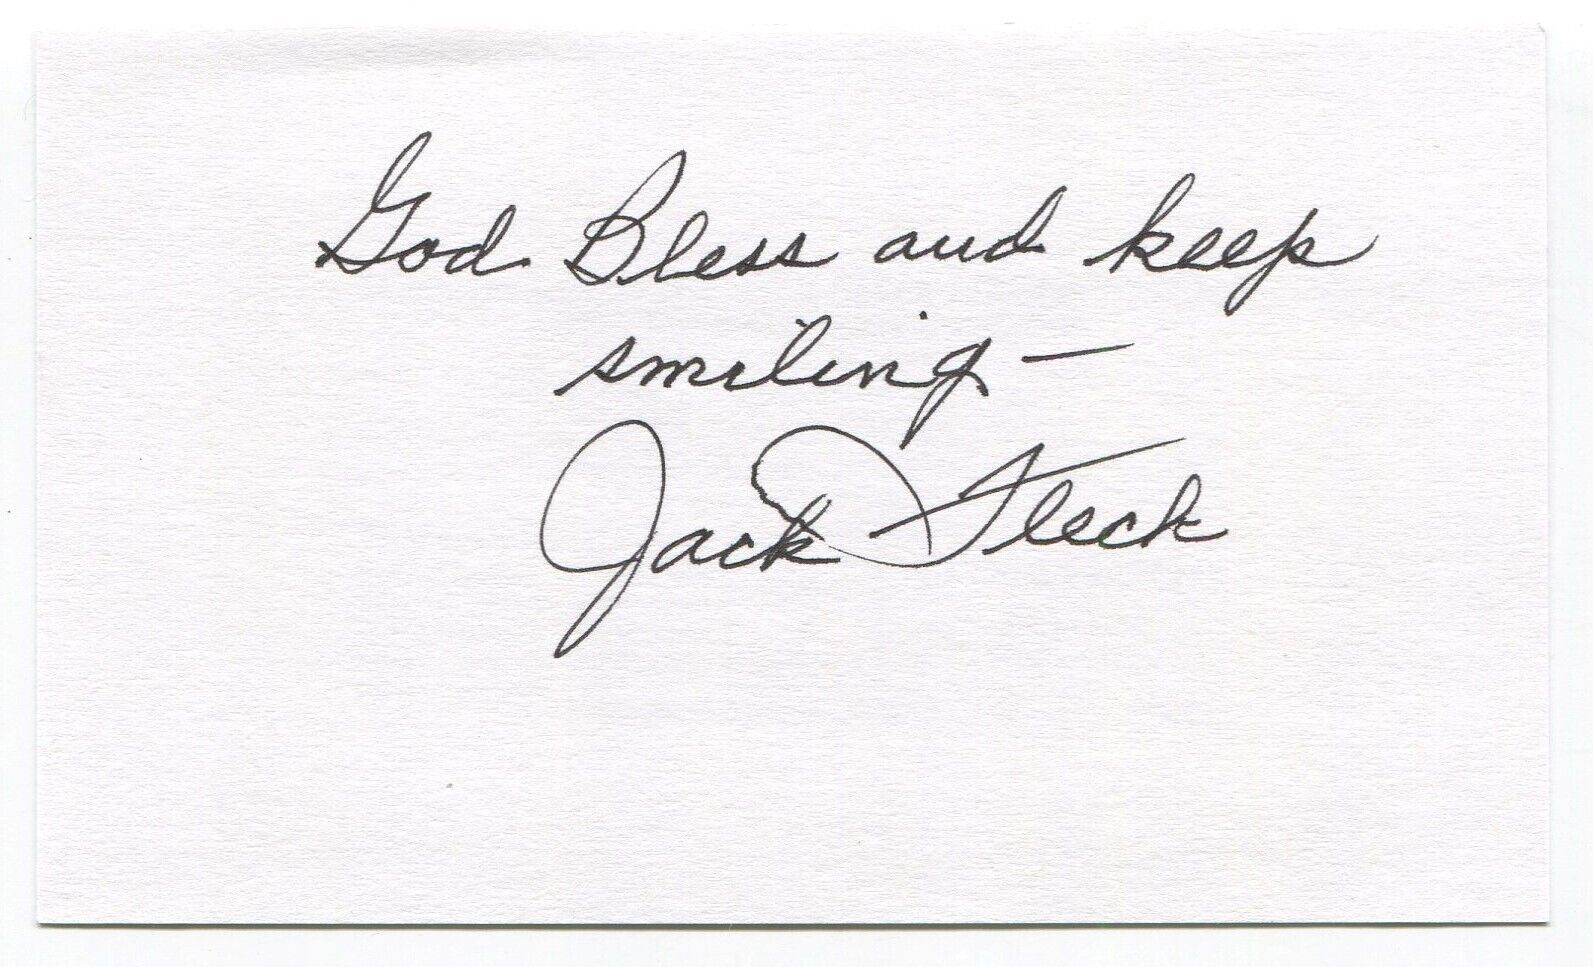 God Bless and keep
smiling —
Jack Fleck